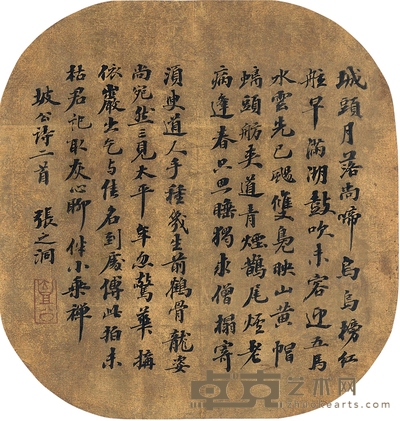 城頭月落尚啼烏烏榜紅
舷早滿湖鼓吹未容迎五馬
水雲先已颺雙鳧映山黃帽
螭頭舫夾道青煙鵲尾爐老
病逢春只思睡獨求僧榻寄
須臾道人手種幾生前鶴骨龍姿
尚宛然三見太平年忽驚華構
依巖出乞与佳名到處傳此柏未
枯君記取灰心聊伴小乘禪
坡公詩二首 張之洞
卓克艺术网